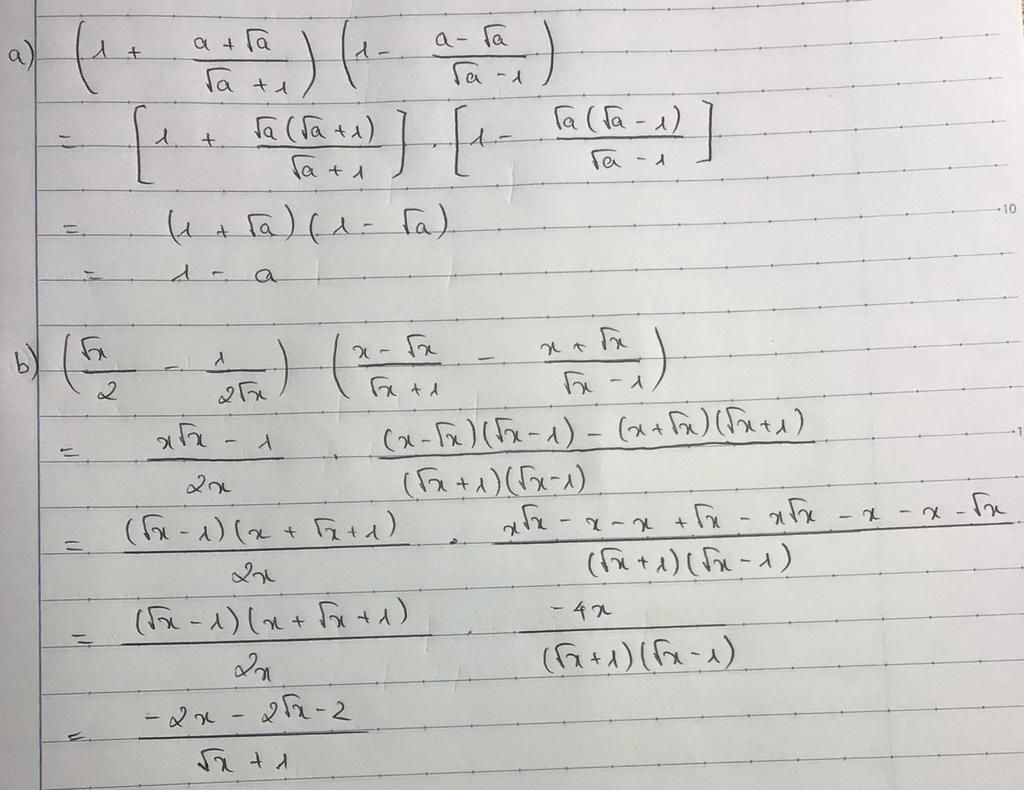 a) (1 + (a + √a)/(√a + 1)) (1 - (a - √a)/(√a - 1))
= [1 + √a(√a + 1)/(√a + 1)] . [1 - √a(√a - 1)/(√a - 1)]
= (1 + √a)(1 - √a)
= 1 - a
b) (√x/2 - 1/(2√x)) ((x - √x)/(√x + 1) - (x + √x)/(√x - 1))
= (x√x - 1)/(2x) . ((x - √x)(√x - 1) - (x + √x)(√x + 1))/((√x + 1)(√x - 1))
= ((√x - 1)(x + √x + 1))/(2x) . (x√x - x - x + √x - x√x - x - x - √x)/((√x + 1)(√x - 1))
= ((√x - 1)(x + √x + 1))/(2x) . (-4x)/((√x + 1)(√x - 1))
= (-2x - 2√x - 2)/(√x + 1)
10